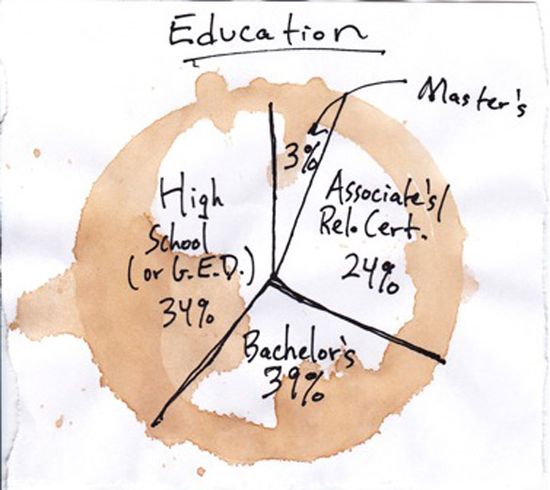 Education
Master's
3%
Associate's/
Rel. Cert.
24%
High
School
(or G.E.D.)
34%
Bachelor's
39%